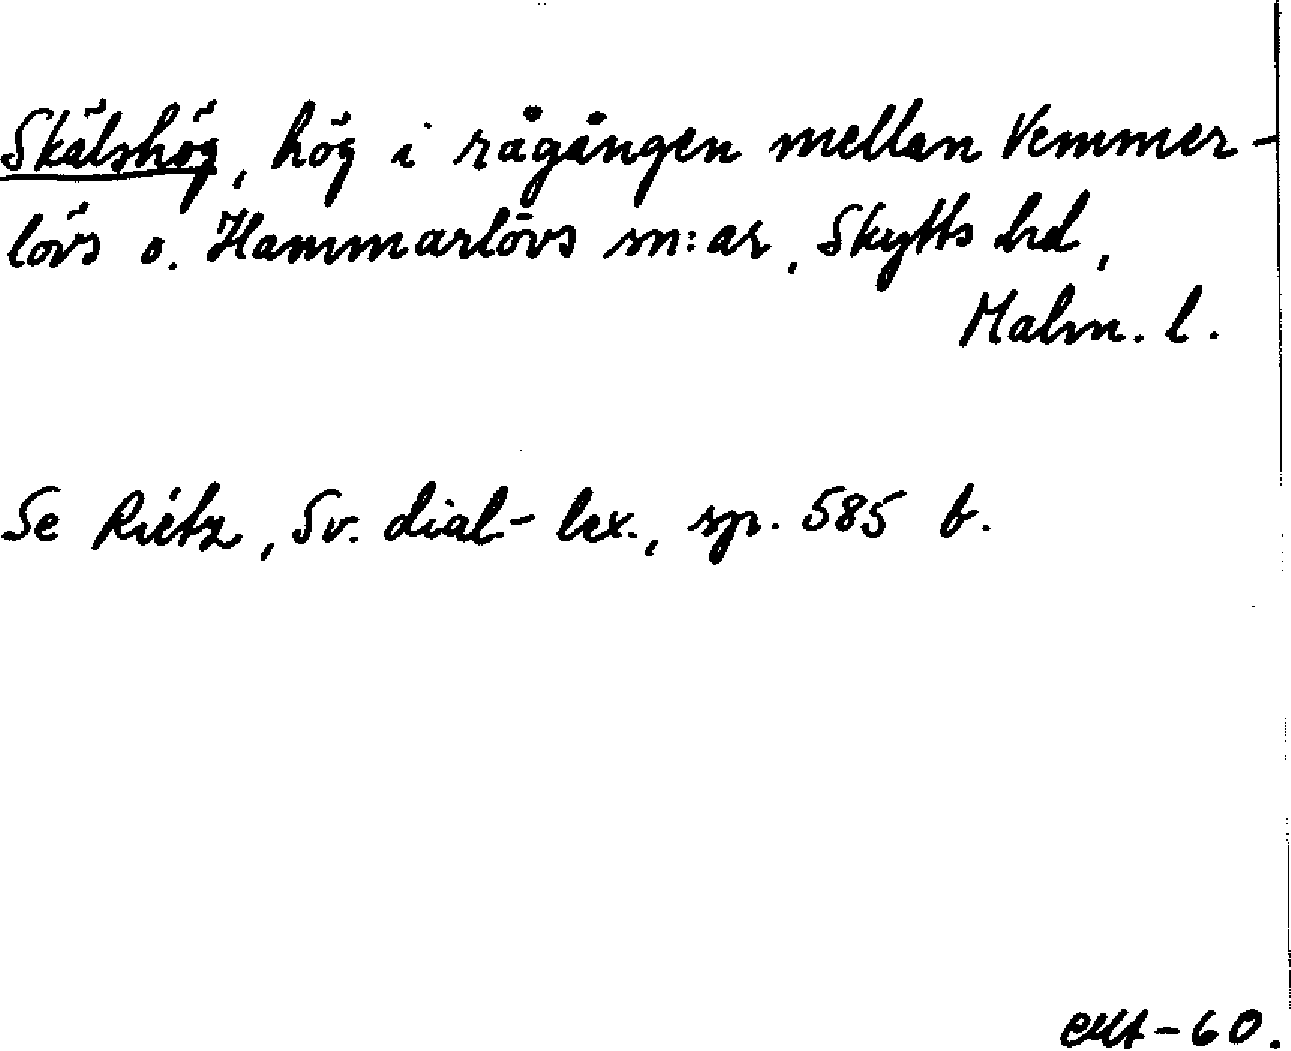 Skälshög, hög i rågången mellan Vemmer-
lövs o. Hammarlövs sn:ar, Skytts hd,
Malm. l.
Se Rietz, Sv. dial-lex., sp. 585 b.
-60.